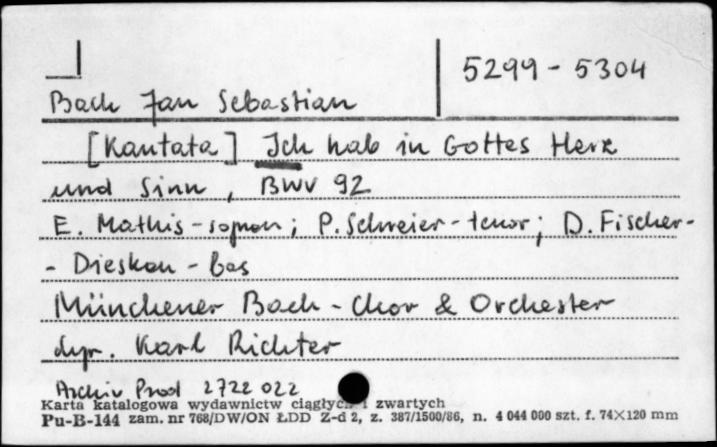 5299 - 5304
Bach Jan Sebastian
[Kantata] Ich hab in Gottes Herz
und Sinn, BWV 92
E. Mathis - sopran; P. Schreier - tenor; D. Fischer-
- Dieskau - bas
Münchener Bach - Chor & Orchester
dyr. Karl Richter
Archiv Prod 2722 022
Karta katalogowa wydawnictw ciągłych i zwartych
Pu-B-144 zam. nr 768/DW/ON ŁDD Z-d 2, z. 387/1500/86, n. 4 044 000 szt. f. 74×120 mm